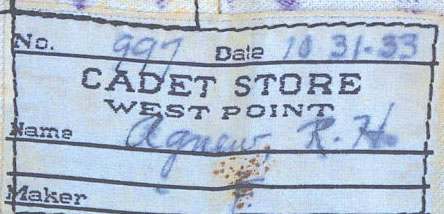 No. 997 Date 10 31-33
CADET STORE
WEST POINT
Name Agnew, R. H.
Maker